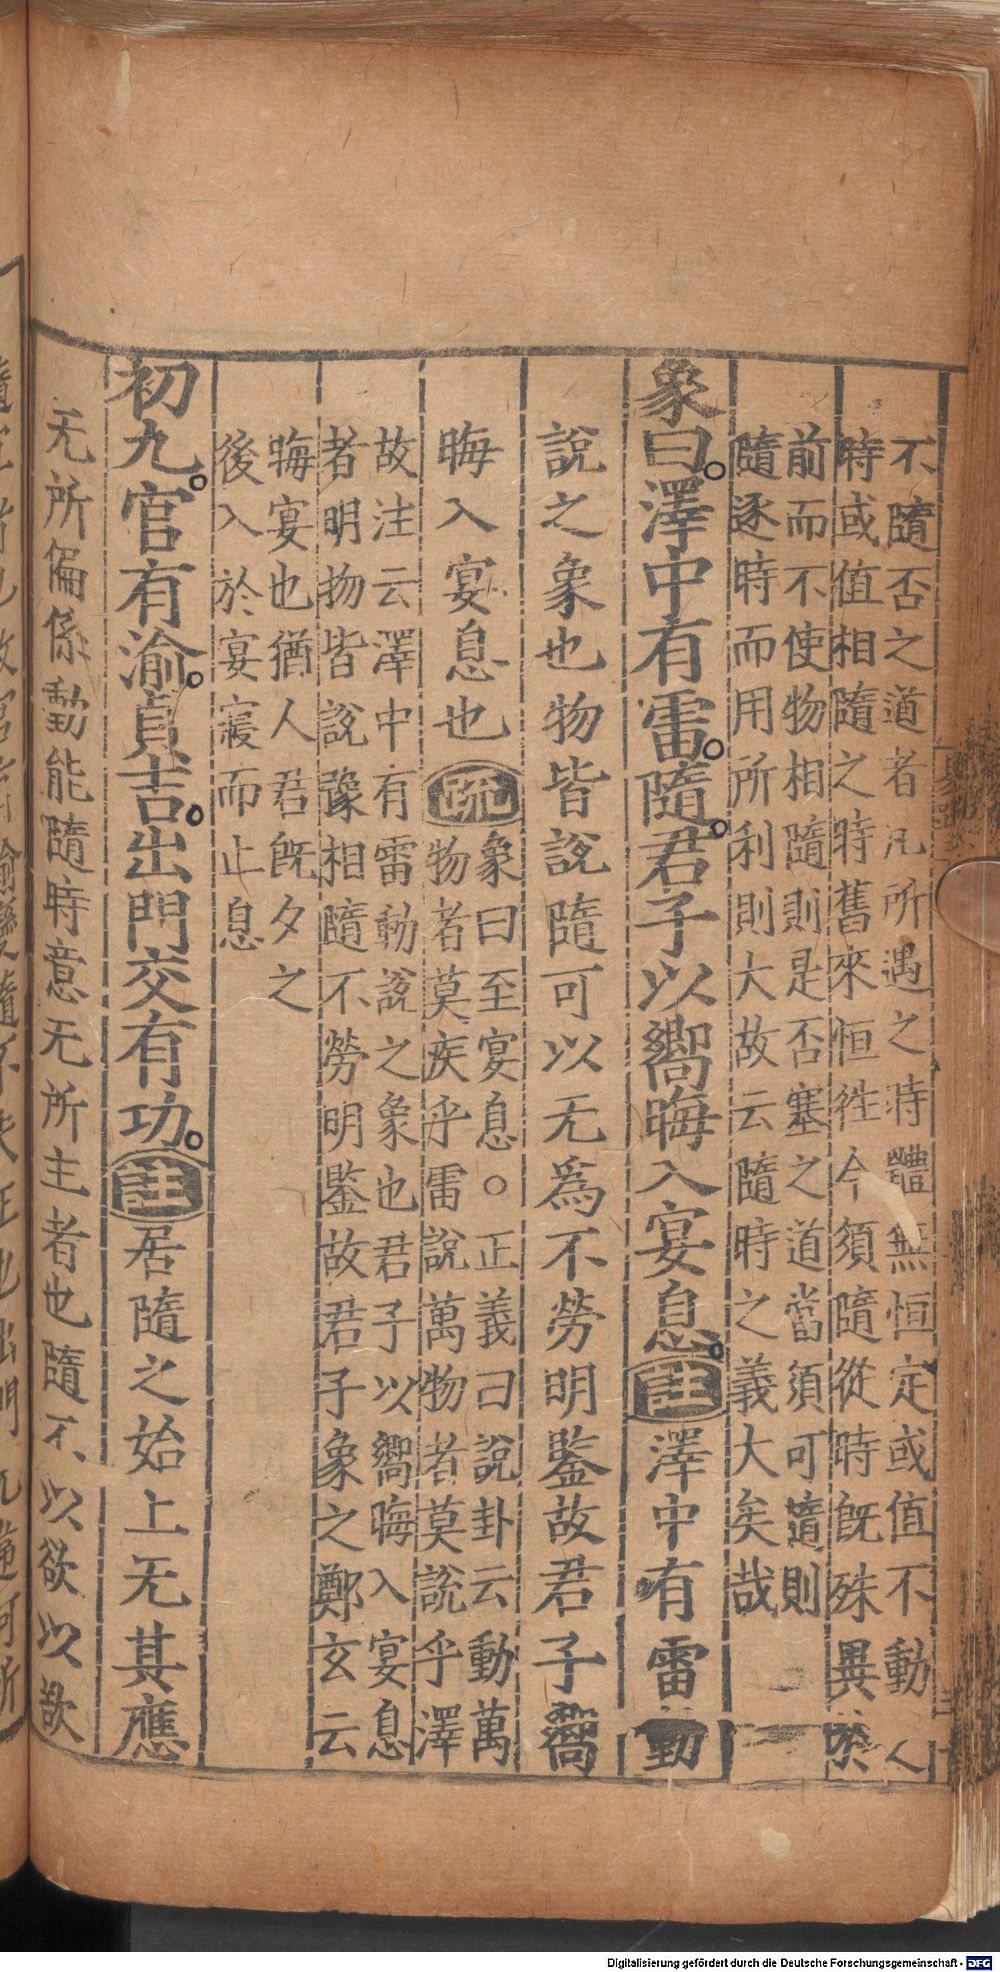 不隨否之道者凡所遇之時體無恒定或值不動人
時或值相隨之時舊來恒徃今須隨從時旣殊異於
前而不使物相隨則是否塞之道當須可隨則
隨逐時而用所利則大故云隨時之義大矣哉
象曰。澤中有雷。隨。君子以嚮晦入宴息。註澤中有雷動
說之象也物皆說隨可以无爲不勞明鑒故君子嚮
晦入宴息也疏
象曰至宴息。正義曰說卦云動萬
物者莫疾乎雷說萬物者莫說乎澤
故注云澤中有雷動說之象也君子以嚮晦入宴息
者明物皆說豫相隨不勞明鑒故君子象之鄭玄云
晦宴也猶人君旣夕之
後入於宴寢而止息
初九。官有渝。貞吉。出門交有功。註居隨之始上无其應
无所偏係動能隨時意无所主者也隨不以欲以欲
Digitalisierung gefördert durch die Deutsche Forschungsgemeinschaft - DFG